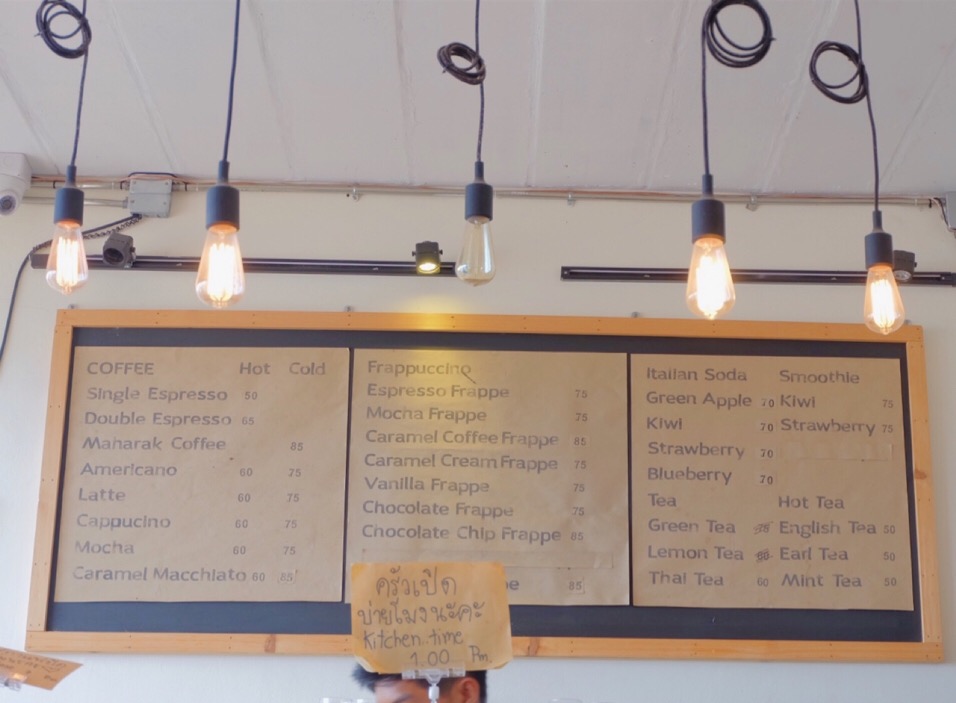 COFFEE Hot Cold
Single Espresso 50
Double Espresso 65
Maharak Coffee 85
Americano 60 75
Latte 60 75
Cappucino 60 75
Mocha 60 75
Caramel Macchiato 60 85
Frappuccino
Espresso Frappe 75
Mocha Frappe 75
Caramel Coffee Frappe 85
Caramel Cream Frappe 75
Vanilla Frappe 75
Chocolate Frappe 75
Chocolate Chip Frappe 85
85
Italian Soda Smoothie
Green Apple 70 Kiwi 75
Kiwi 70 Strawberry 75
Strawberry 70
Blueberry 70
Tea Hot Tea
Green Tea English Tea 50
Lemon Tea Earl Tea 50
Thai Tea 60 Mint Tea 50
ครัวเปิด
บ่ายโมงนะคะ
Kitchen time
1.00 Pm.